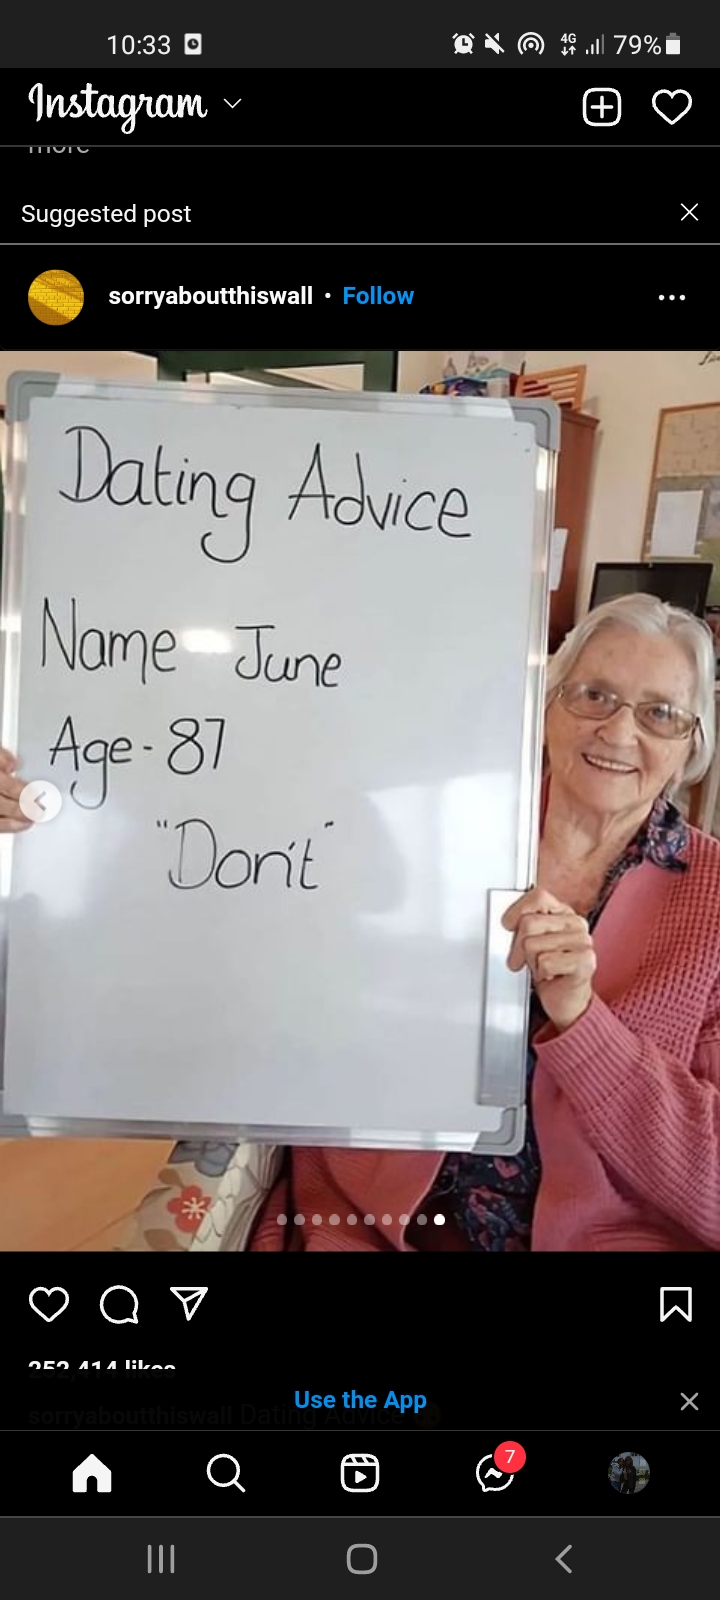 10:33
4G
79%
Instagram
more
Suggested post
sorryaboutthiswall • Follow
Dating Advice
Name June
Age-87
"Don't"
252,414 likes
Use the App
sorryaboutthiswall Dating Advice
7